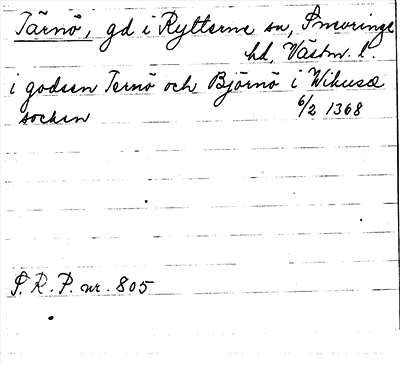 Tärnö, gd i Rytterne sn, Snevringe
hd, Västm. l.
i godsen Ternö och Björnö i Wikusa
socken 6/2 1368
S. R. P. nr. 805